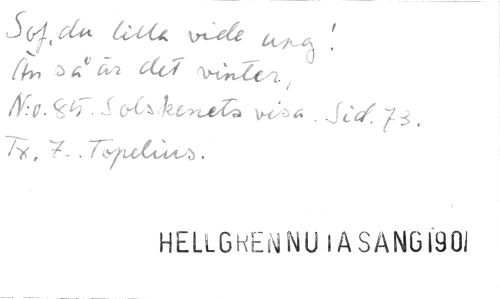 Sof, du lilla vide ung!
Än så är det vinter,
N:o. 85. Solskenets visa. Sid. 73.
Tx. Z. Topelius.
HELLGREN NU 1A SANG 1901